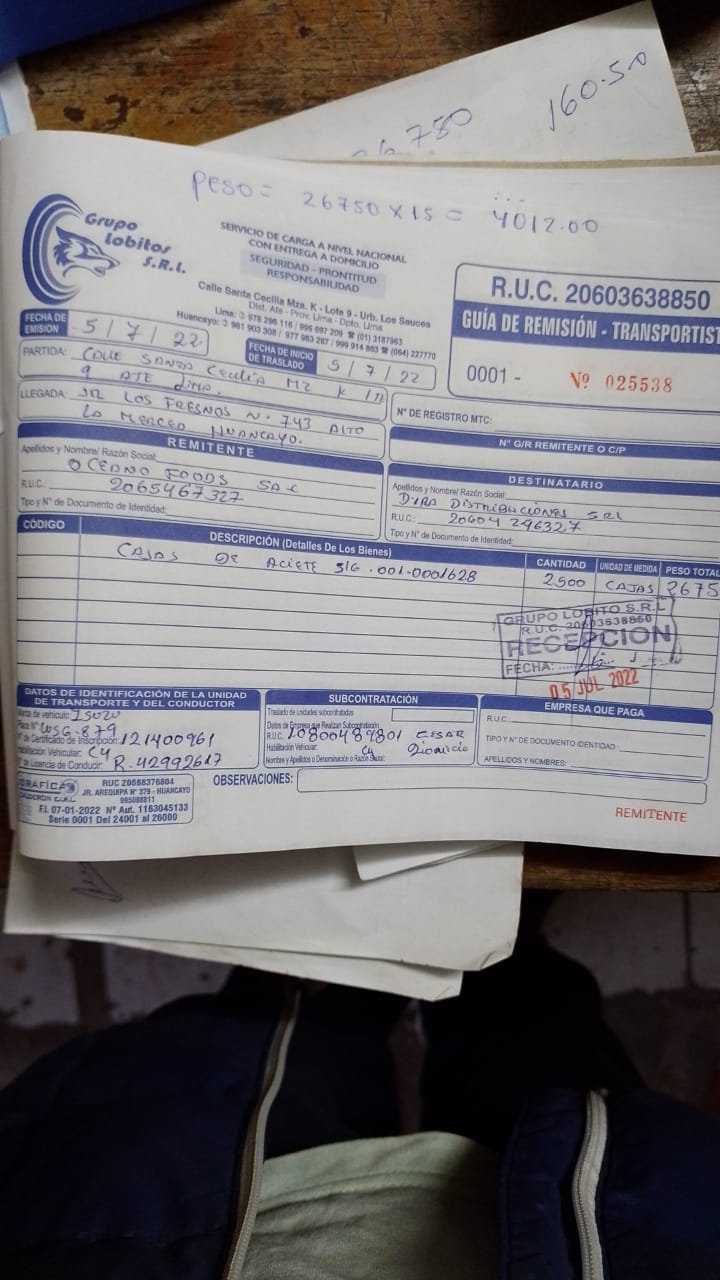 780
160.50
Peso = 26750 x 15 = 4012.00
Grupo Lobitos S.R.L.
SERVICIO DE CARGA A NIVEL NACIONAL
CON ENTREGA A DOMICILIO
SEGURIDAD - PRONTITUD
RESPONSABILIDAD
Calle Santa Cecilia Mza. K - Lote 9 - Urb. Los Sauces
Dist. Ate - Prov. Lima - Dpto. Lima
Lima: 978 296 116 / 996 697 209 (01) 3187963
Huancayo: 961 903 308 / 977 983 287 / 999 914 863 (064) 227770
R.U.C. 20603638850
GUÍA DE REMISIÓN - TRANSPORTIST
0001 - Nº 025538
FECHA DE EMISION 5/7/22
FECHA DE INICIO DE TRASLADO 5/7/22
PARTIDA: Calle Santa Cecilia Mz K
9 ATE Lima.
LLEGADA: JR LOS FRESNOS N- 743 ALTO
LA MERCED HUANCAYO.
N° DE REGISTRO MTC:
N° G/R REMITENTE O C/P
REMITENTE
Apellidos y Nombre/ Razón Social:
OCEANO FOODS SAC
R.U.C.: 2065467327
Tipo y N° de Documento de Identidad:
DESTINATARIO
Apellidos y Nombre/ Razón Social
DISTRIBUCIONES SRL
R.U.C.: 20604296327
Tipo y N° de Documento de Identidad:
CÓDIGO DESCRIPCIÓN (Detalles De Los Bienes) CANTIDAD UNIDAD DE MEDIDA PESO TOTAL
CAJAS DE ACIETE S/G.001-0001628 2500 CAJAS 2675
GRUPO LOBITO S.R.L
R.U.C. 20603638850
RECEPCION
FECHA:
05 JUL 2022
DATOS DE IDENTIFICACIÓN DE LA UNIDAD
DE TRANSPORTE Y DEL CONDUCTOR
Marca de vehículo: ISUZU
Placa N° W5G-879
N° de Certificado de Inscripción: 121400961
Habilitación Vehicular: C4
N° de Licencia de Conducir: R.42992617
SUBCONTRATACIÓN
Traslado de unidades subcontratadas
Datos de Empresa que Realizan Subcontratación
R.U.C. 10800489801 CESAR
Habilitación Vehicular: C4 Dionicio
Nombre y Apellidos o Denominación o Razón Social:
EMPRESA QUE PAGA
R.U.C.:
TIPO Y N° DE DOCUMENTO IDENTIDAD:
APELLIDOS Y NOMBRES:
GRAFICA
CALDERÓN E.I.R.L.
RUC 20568376804
JR. AREQUIPA N° 379 - HUANCAYO
995066811
F.I. 07-01-2022 Nº Aut. 1163045133
Serie 0001 Del 24001 al 26000
OBSERVACIONES:
REMITENTE